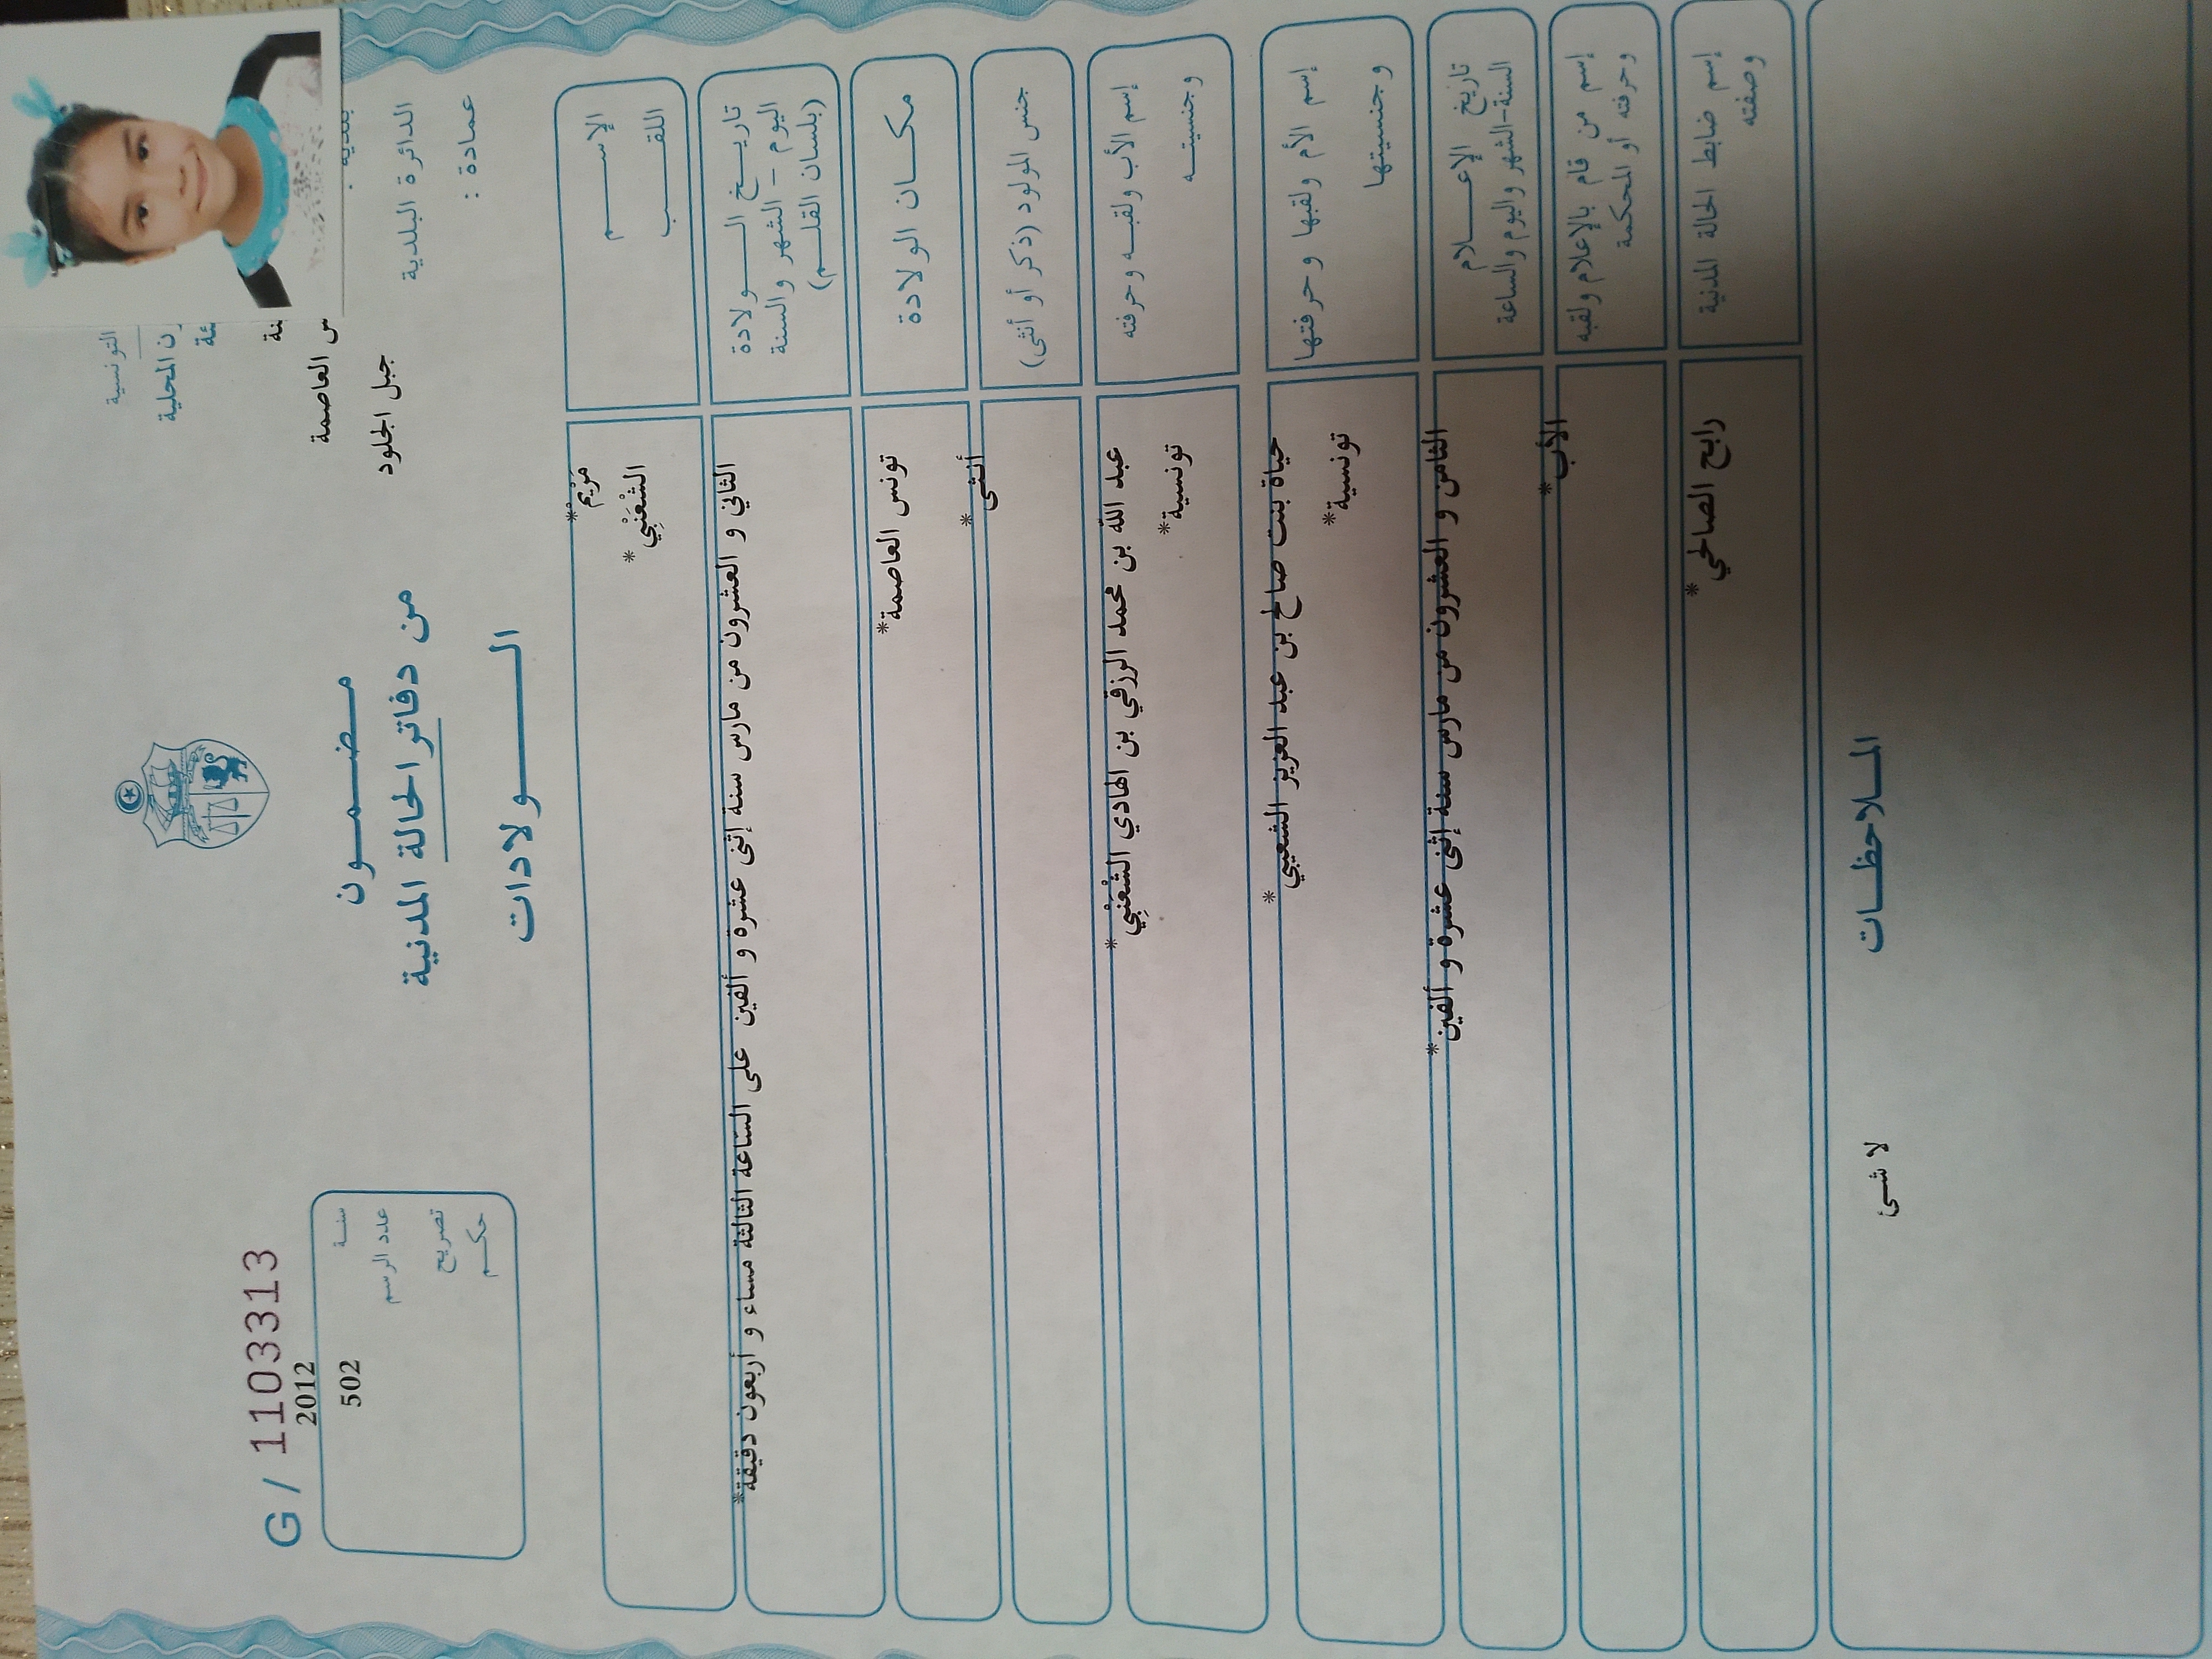 التونسية
المحلية
العاصمة
الدائرة البلدية
جبل الجلود
عمادة :
مضمون
من دفاتر الحالة المدنية
الولادات
G / 1103313
2012
سنة
502
عدد الرسم
تصريح
حكم
الإسم
مَرْيم*
اللقب
الشْعَنْبِي*
تاريخ الولادة
اليوم - الشهر والسنة
(بلسان القلم)
الثاني و العشرون من مارس سنة إثنى عشرة و ألفين على الساعة الثالثة مساء و أربعون دقيقة*
مكان الولادة
تونس العاصمة*
جنس المولود (ذكر أو أنثى)
أنثى*
إسم الأب ولقبه وحرفته
وجنسيته
عبد الله بن محمد الرزقي بن الهادي الشْعَنْبِي*
تونسية*
إسم الأم ولقبها وحرفتها
وجنسيتها
حياة بنت صالح بن عبد العزيز الشعيبي*
تونسية*
تاريخ الإعلام
السنة-الشهر واليوم والساعة
الثامن و العشرون من مارس سنة إثنى عشرة و ألفين*
إسم من قام بالإعلام ولقبه
وحرفته أو المحكمة
الأب*
إسم ضابط الحالة المدنية
وصفته
رابح الصالحي*
الملاحظات
لا شئ